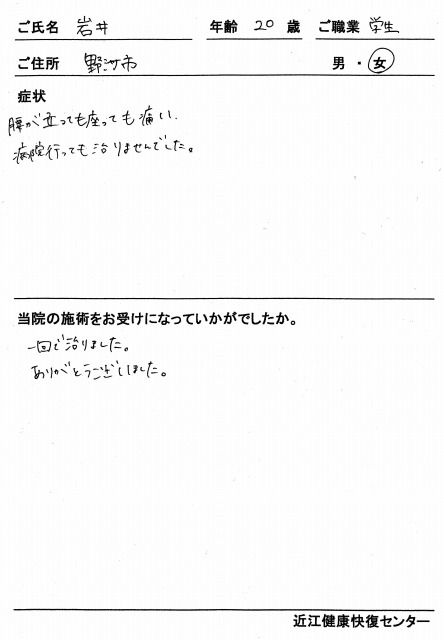 ご氏名 岩井 年齢 20 歳 ご職業 学生
ご住所 野洲市 男・女
症状
腰が立っても座っても痛い、
病院行っても治りませんでした。
当院の施術をお受けになっていかがでしたか。
一回で治りました。
ありがとうございました。
近江健康快復センター